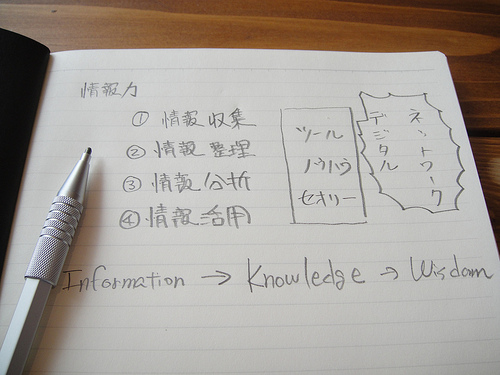 情報力
① 情報収集
② 情報整理
③ 情報分析
④ 情報活用
ツール
ノウハウ
セオリー
ネットワーク
デジタル
Information → Knowledge → Wisdom